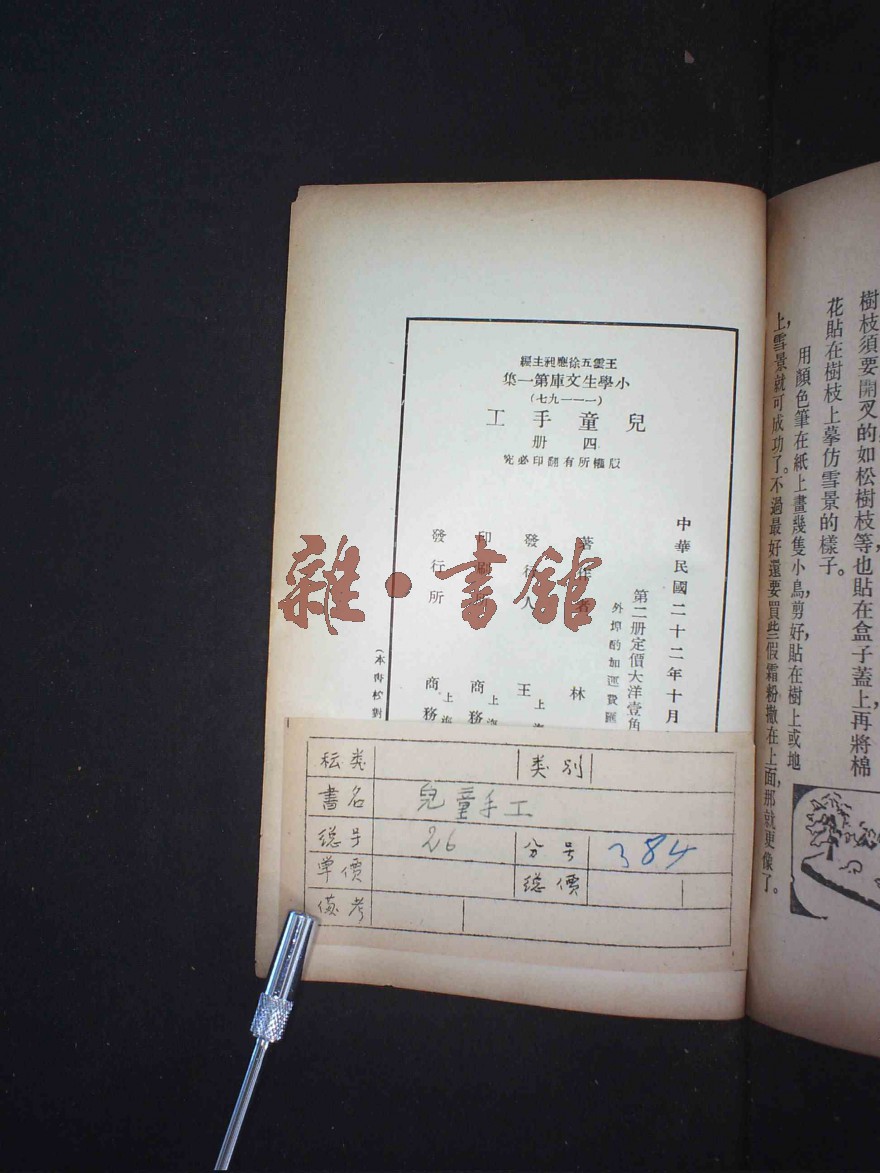 樹枝須要開叉的,如松樹枝等也貼在盒子蓋上,再將棉
花貼在樹枝上摹仿雪景的樣子。
用顏色筆在紙上畫幾隻小鳥,剪好,貼在樹上或地
上,雪景就可成功了。不過最好還要買些假霜粉撒在上面,那就更像了。
王雲五徐應昶主編
小學生文庫第一集
(一——一九七)
兒童手工
四册
版權所有翻印必究
中華民國二十二年十月
第二册定價大洋壹角
外埠酌加運費匯
著作者 林
發行人 王
上海
印刷所 商務
上海
發行所 商務
(本書校對
雜·書館
类别
書名 兒童手工
總号 26 分号 384
單價 總價
備考